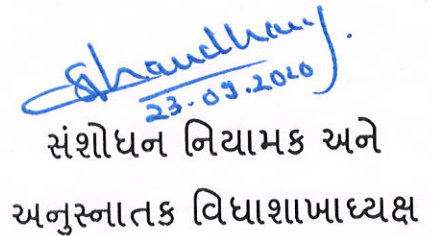 Chaudhary.
23.09.2020
સંશોધન નિયામક અને
અનુસ્નાતક વિદ્યાશાખાધ્યક્ષ